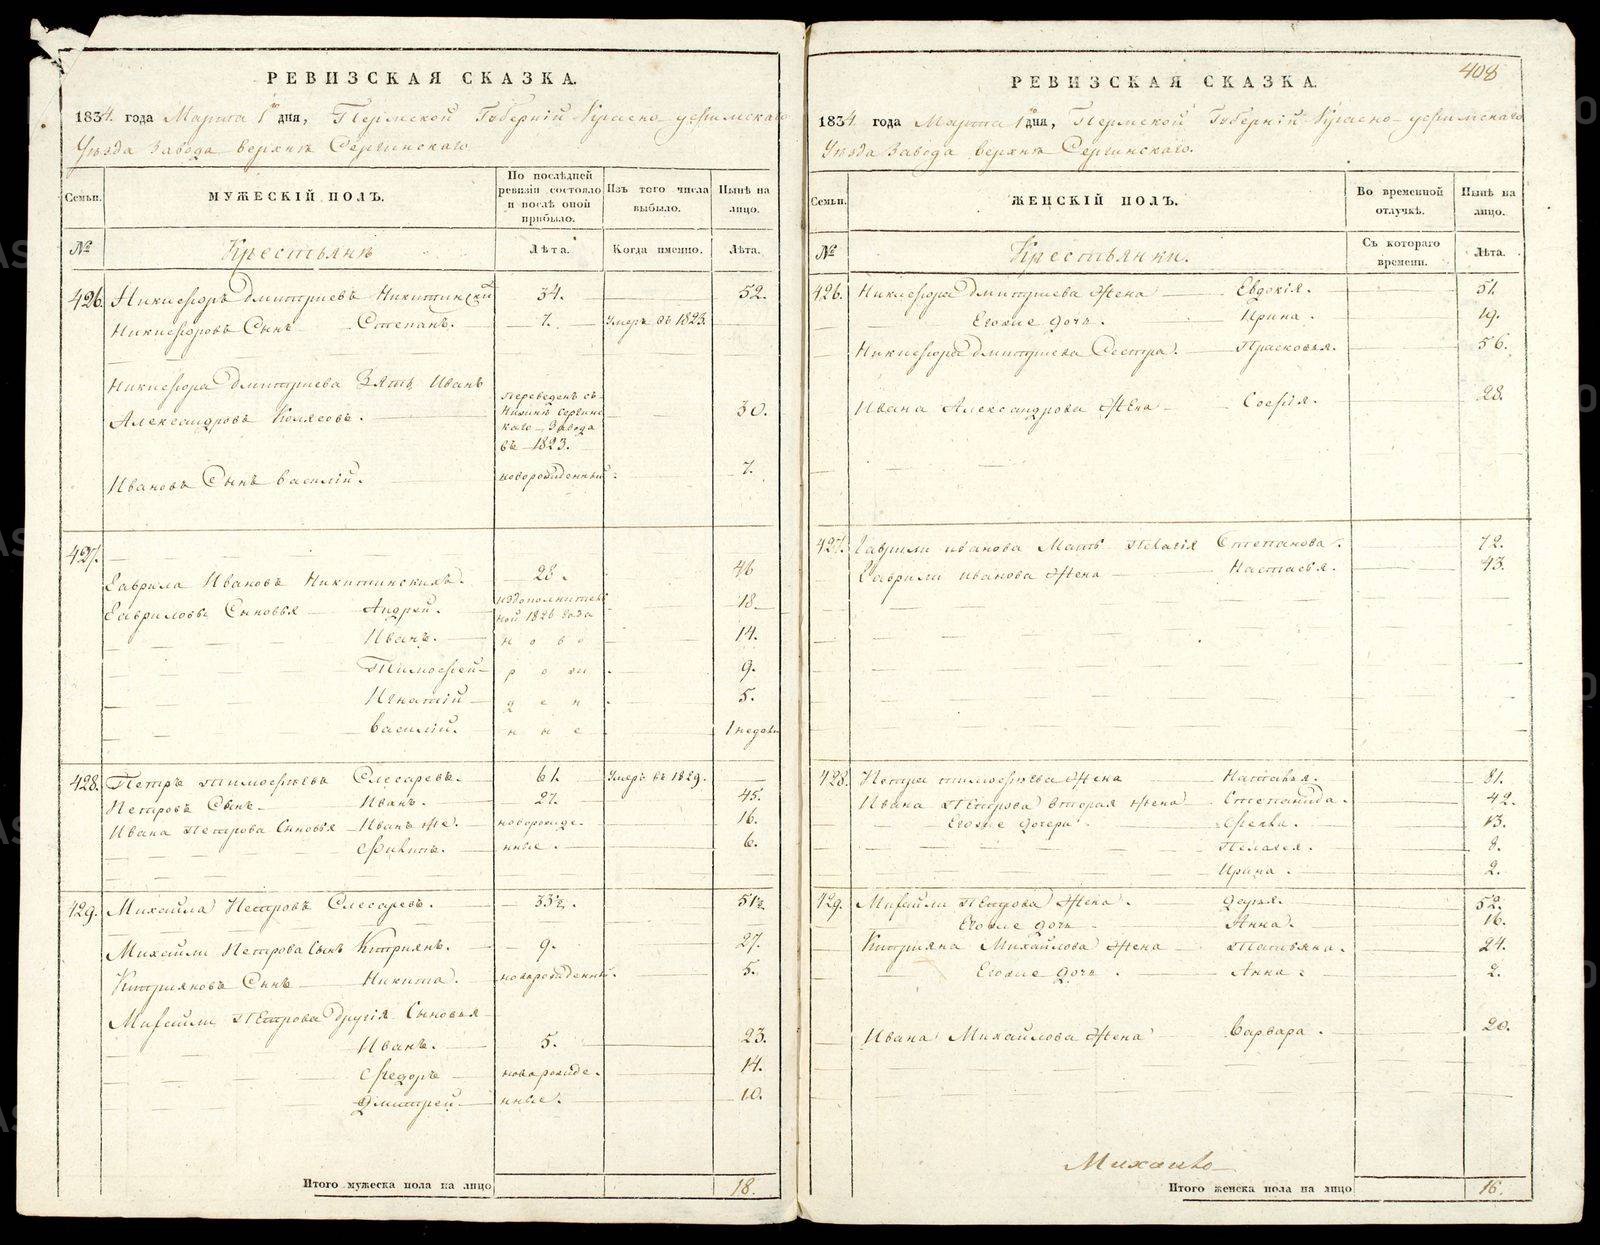 РЕВИЗСКАЯ СКАЗКА.
1834. года Марта 1го дня, Пермской Губерніи Красно-уфимскаго
Уѣзда Завода верхнѣ Сергинскаго
Семьи.
МУЖЕСКІЙ ПОЛЪ.
По послѣдней ревизіи состояло и послѣ оной прибыло.
Изъ того числа выбыло.
Нынѣ на лицо.
№
Крестьянѣ
Лѣта.
Когда именно.
Лѣта.
426. Никифоръ Дмитріевъ Никитинскій 34. 52.
Никифоровъ Сынъ Степанъ. 7. Умеръ въ 1823.
Никифора Дмитріева Зять Иванъ
Александровъ Колясовъ. Переведенъ съ Нижнѣ Сергинскаго Завода въ 1823. 30.
Ивановъ Сынъ Василій. новорожденный. 7.
427.
Гаврила Ивановъ Никитинскихъ. 28. 46
Гавриловы Сыновья Андрей. издополнительной 1826 года 18
Иванъ. н о в о 14.
Тимофей р о ж 9.
Игнатій д е н 5.
Василій. н ы е 1 недели
428. Петръ Тимофѣевъ Слесаревъ. 61. Умеръ въ 1829.
Петровъ Сынъ Иванъ. 27. 45.
Ивана Петрова Сыновья Иванъ же. новорожде- 16.
Филипъ. нные. 6.
429. Михайла Петровъ Слесаревъ. 33½. 51½
Михайлы Петрова Сынъ Кипріянъ. 9. 27.
Кипріяновъ Сынъ Никита. новорожденный. 5.
Михайлы Петрова другія Сыновья
Иванъ. 5. 23.
Федоръ новорожде- 14.
Дмитрей нные. 10.
Итого мужеска пола на лицо 18.
408
РЕВИЗСКАЯ СКАЗКА.
1834. года Марта 1го дня, Пермской Губерніи Красно-уфимскаго
Уѣзда Завода верхнѣ Сергинскаго.
Семьи.
ЖЕНСКІЙ ПОЛЪ.
Во временной отлучкѣ.
Нынѣ на лицо.
№
Крестьянки.
Съ котораго времени.
Лѣта.
426. Никифора Дмитріева Жена Евдокія. 51.
Егоже дочь. Ирина. 19.
Никифора Дмитріева Сестра. Прасковья. 56.
Ивана Александрова Жена Софія. 28.
427. Гаврилы Иванова Мать Пелагія Степанова. 72.
Гаврилы Иванова Жена Настасья. 43.
428. Петра Тимофѣева Жена Наталья. 81.
Ивана Петрова вторая Жена Степанида. 42.
Егоже дочери Фекла. 13.
Пелагея. 8.
Ирина. 2.
429. Михайлы Петрова Жена. Дарья. 52.
Егоже дочь Анна. 16.
Кипріяна Михайлова Жена Татьяна. 24.
Егоже дочь Анна. 2.
Ивана Михайлова Жена Варвара. 20.
Михайло
Итого женска пола на лицо 16.